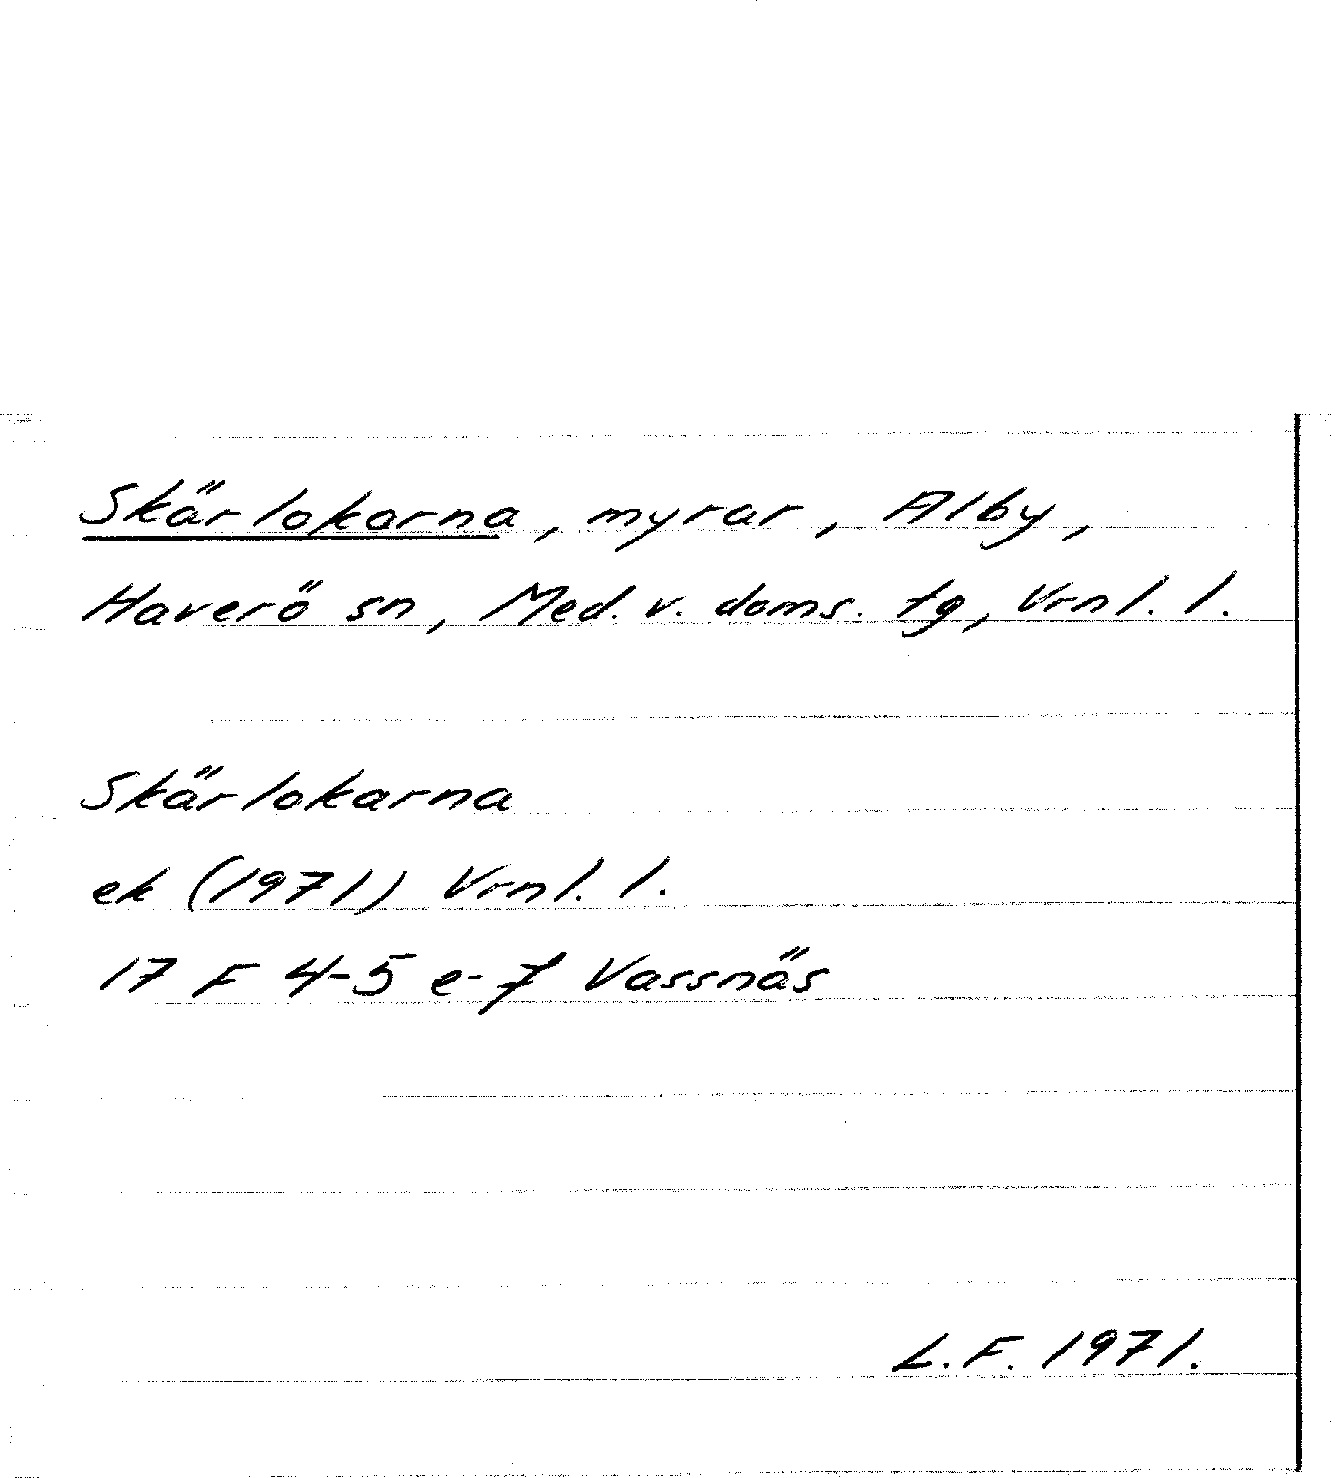 Skärlokarna, myrar, Alby,
Haverö sn, Med. v. doms. tg, Vrnl. l.
Skärlokarna
ek (1971) Vrnl. l.
17 F 4-5 e-f Vassnäs
L.F. 1971.